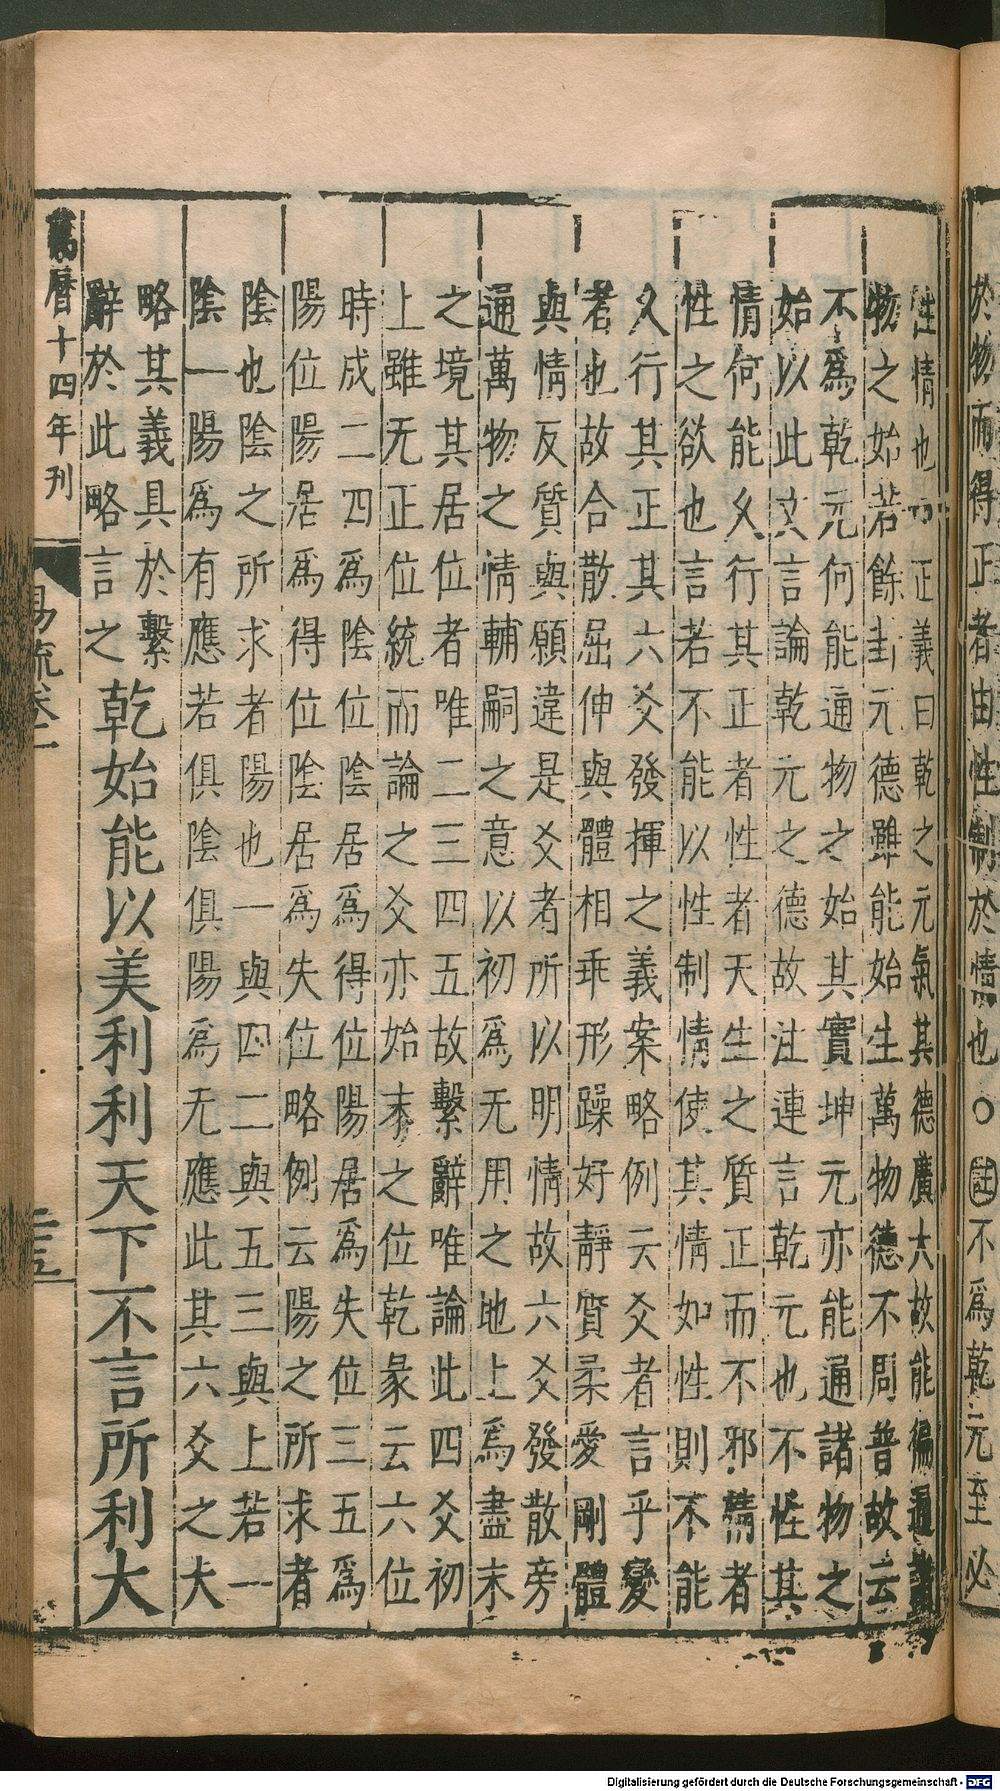 於物而得正者由性制於情也○註不爲乾元至必
性情也 正義曰乾之元氣其德廣大故能徧通諸
物之始若餘卦元德雖能始生萬物德不周普故云
不爲乾元何能通物之始其實坤元亦能通諸物之
始以此文言論乾元之德故註連言乾元也不性其
情何能久行其正者性者天生之質正而不邪情者
性之欲也言若不能以性制情使其情如性則不能
久行其正其六爻發揮之義案略例云爻者言乎變
者也故合散屈伸與體相乖形躁好靜質柔愛剛體
與情反質與願違是爻者所以明情故六爻發散旁
通萬物之情輔嗣之意以初爲无用之地上爲盡末
之境其居位者唯二三四五故繫辭唯論此四爻初
上雖无正位統而論之爻亦始末之位乾彖云六位
時成二四爲陰位陰居爲得位陽居爲失位三五爲
陽位陽居爲得位陰居爲失位略例云陽之所求者
陰也陰之所求者陽也一與四二與五三與上若一
陰一陽爲有應若俱陰俱陽爲无應此其六爻之夫
略其義具於繫
辭於此略言之
乾始能以美利利天下不言所利大
萬曆十四年刊
易疏卷一
二十五
Digitalisierung gefördert durch die Deutsche Forschungsgemeinschaft - DFG